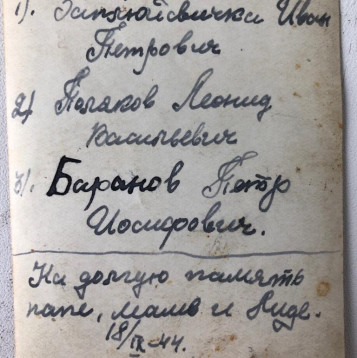 1). Иван
Петрович
2) Поляков Леонид
Васильевич
3). Баранов Петр
Иосифович.
На долгую память
папе, маме и Лиде.
18/IX-44.